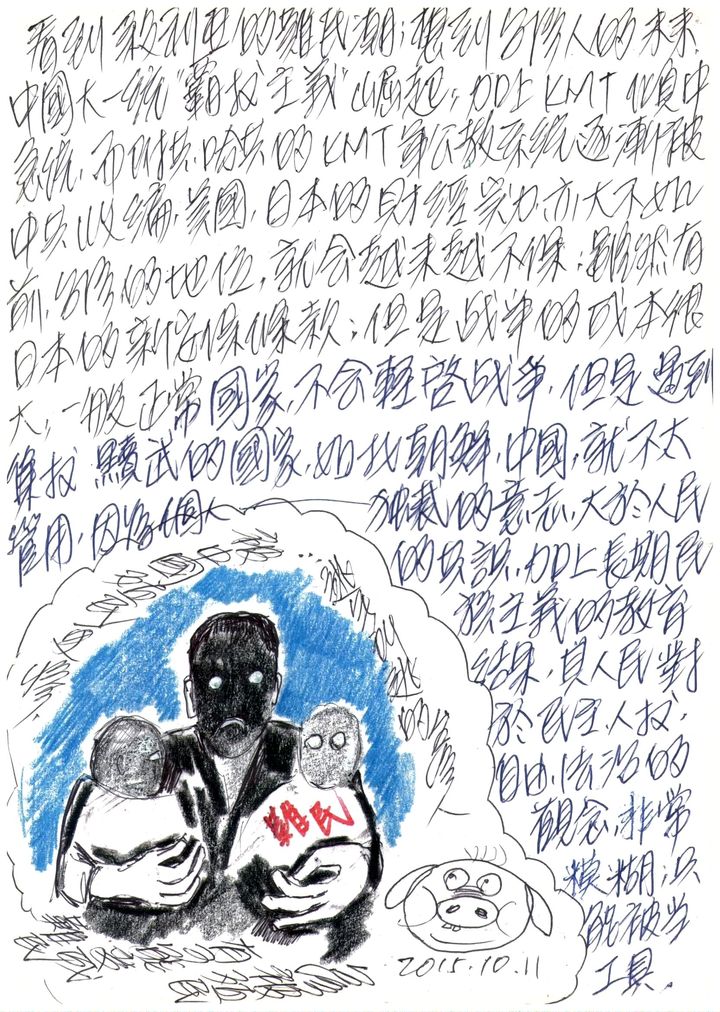 看到敘利亞的難民潮;想到台灣人的未來
中國大一統"霸权主義"崛起;加上KMT化負中
急統,而附共、哈共的KMT軍公教系統逐漸被
中共收編,美國,日本的財經实力,亦大不如
前,台灣的地位,就会越來越不保;雖然有
日本的新安保條款;但是战争的成本很
大,一般正常國家,不会輕啓战争,但是遇到
集权 黷武的國家,如北朝鮮,中國,就不太
管用,因為個人 独裁的意志,大於人民
的共識,加上長期民
族主義的教育
結果,其人民對
於民主、人权、
自由、法治的
觀念,非常
模糊;只
能被当
工具.
難民
2015.10.11